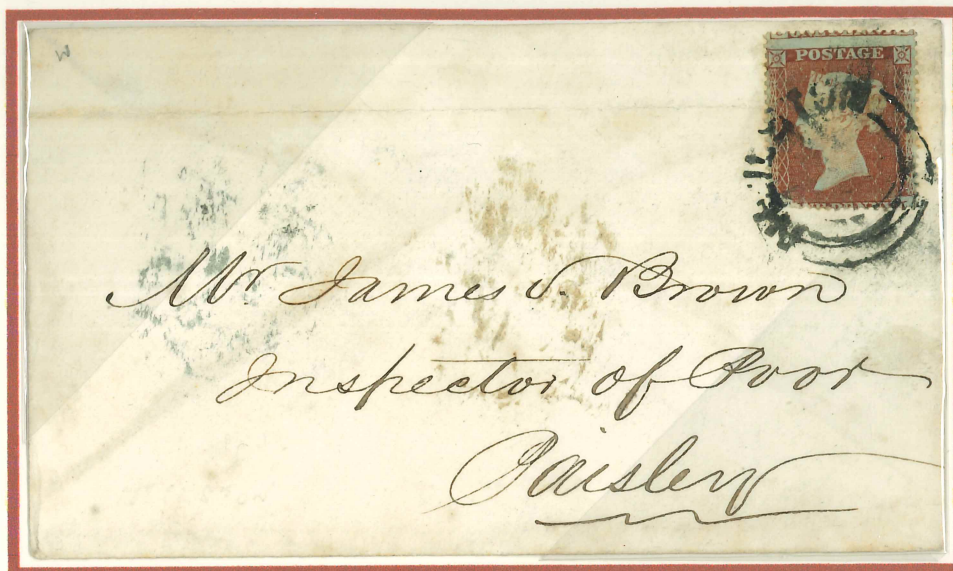 POSTAGE
Mr James S. Brown
Inspector of Poor
Paisley